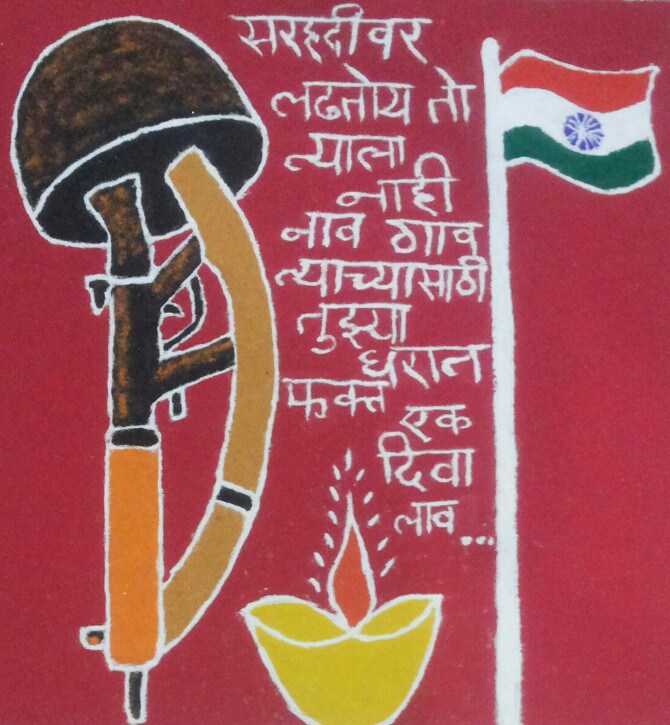 सरहद्दीवर
लढतोय तो
त्याला
नाही
नाव गाव
त्याच्यासाठी
तुझ्या
घरान
फक्त
एक
दिवा
लाव...